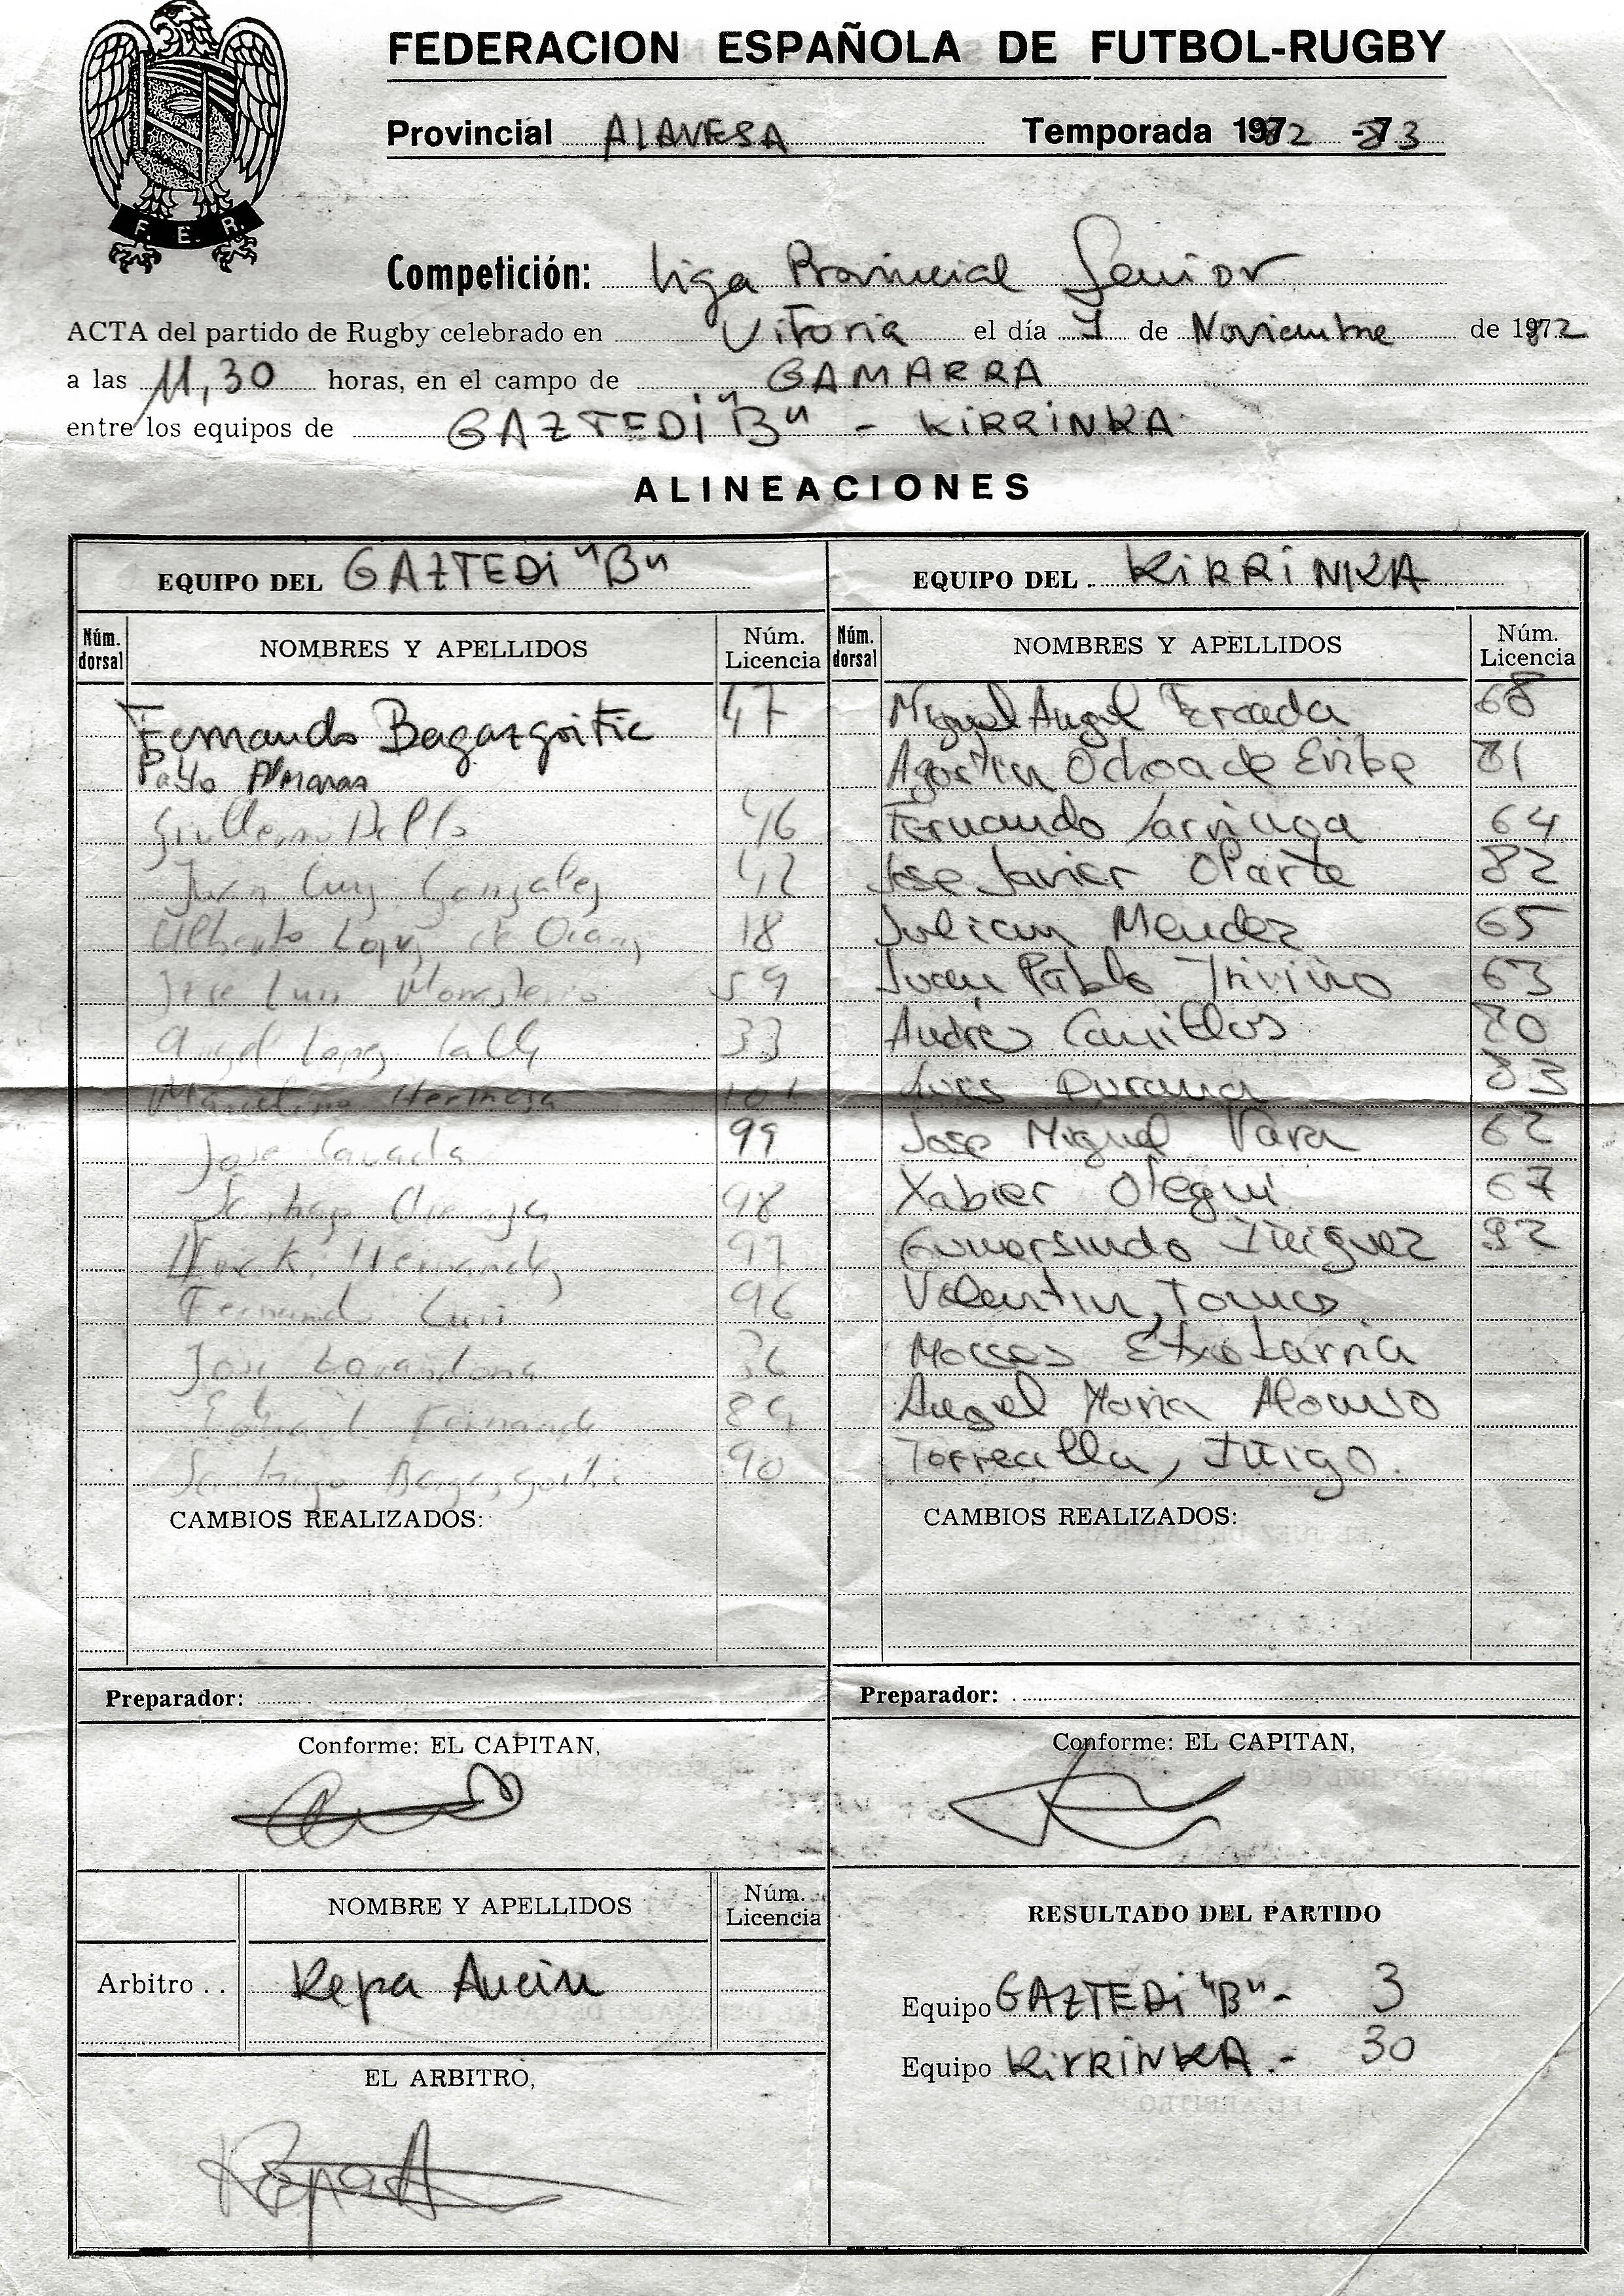 FEDERACION ESPAÑOLA DE FUTBOL-RUGBY
Provincial ALAVESA Temporada 1982 - 83
F. E. R.
Competición: Liga Provincial Senior
ACTA del partido de Rugby celebrado en Vitoria el día 7 de Noviembre de 1982
a las 11,30 horas, en el campo de GAMARRA
entre los equipos de GAZTEDI "B" - KIRRINKA
ALINEACIONES
EQUIPO DEL GAZTEDI "B"
Núm. dorsal NOMBRES Y APELLIDOS Núm. Licencia
Fernando Bagazgoitia 47
Pablo
Guillermo 46
Juan Luis Gonzalez 42
Alberto Lopez de 18
Jose Luis Monesterio 59
Angel Lopez 33
Marcelino Hermosa 101
Jose 99
98
Hernandez 97
Fernando Luis 96
Jose
Fernand
Santiago Bagazgoitia 90
CAMBIOS REALIZADOS:
Preparador:
Conforme: EL CAPITAN,
EQUIPO DEL KIRRINKA
Núm. dorsal NOMBRES Y APELLIDOS Núm. Licencia
Miguel Angel 68
Agostin Ochoa de Eribe 81
Fernando Larrinoa 64
Jose Javier Oñarte 82
Julian Mendez 65
Juan Pablo Triviño 63
Andrés Canillas
Luis Durana 83
Jose Miguel Vara 62
Xabier Otegui 67
Gumersindo Iñiguez 92
Valentin,
Etxebarria
Angel Maria Alonso
Torrecilla, Iñigo.
CAMBIOS REALIZADOS:
Preparador:
Conforme: EL CAPITAN,
NOMBRE Y APELLIDOS Núm. Licencia
Arbitro . . Kepa Ancin
EL ARBITRO,
RESULTADO DEL PARTIDO
Equipo GAZTEDI "B" - 3
Equipo KIRRINKA. - 30